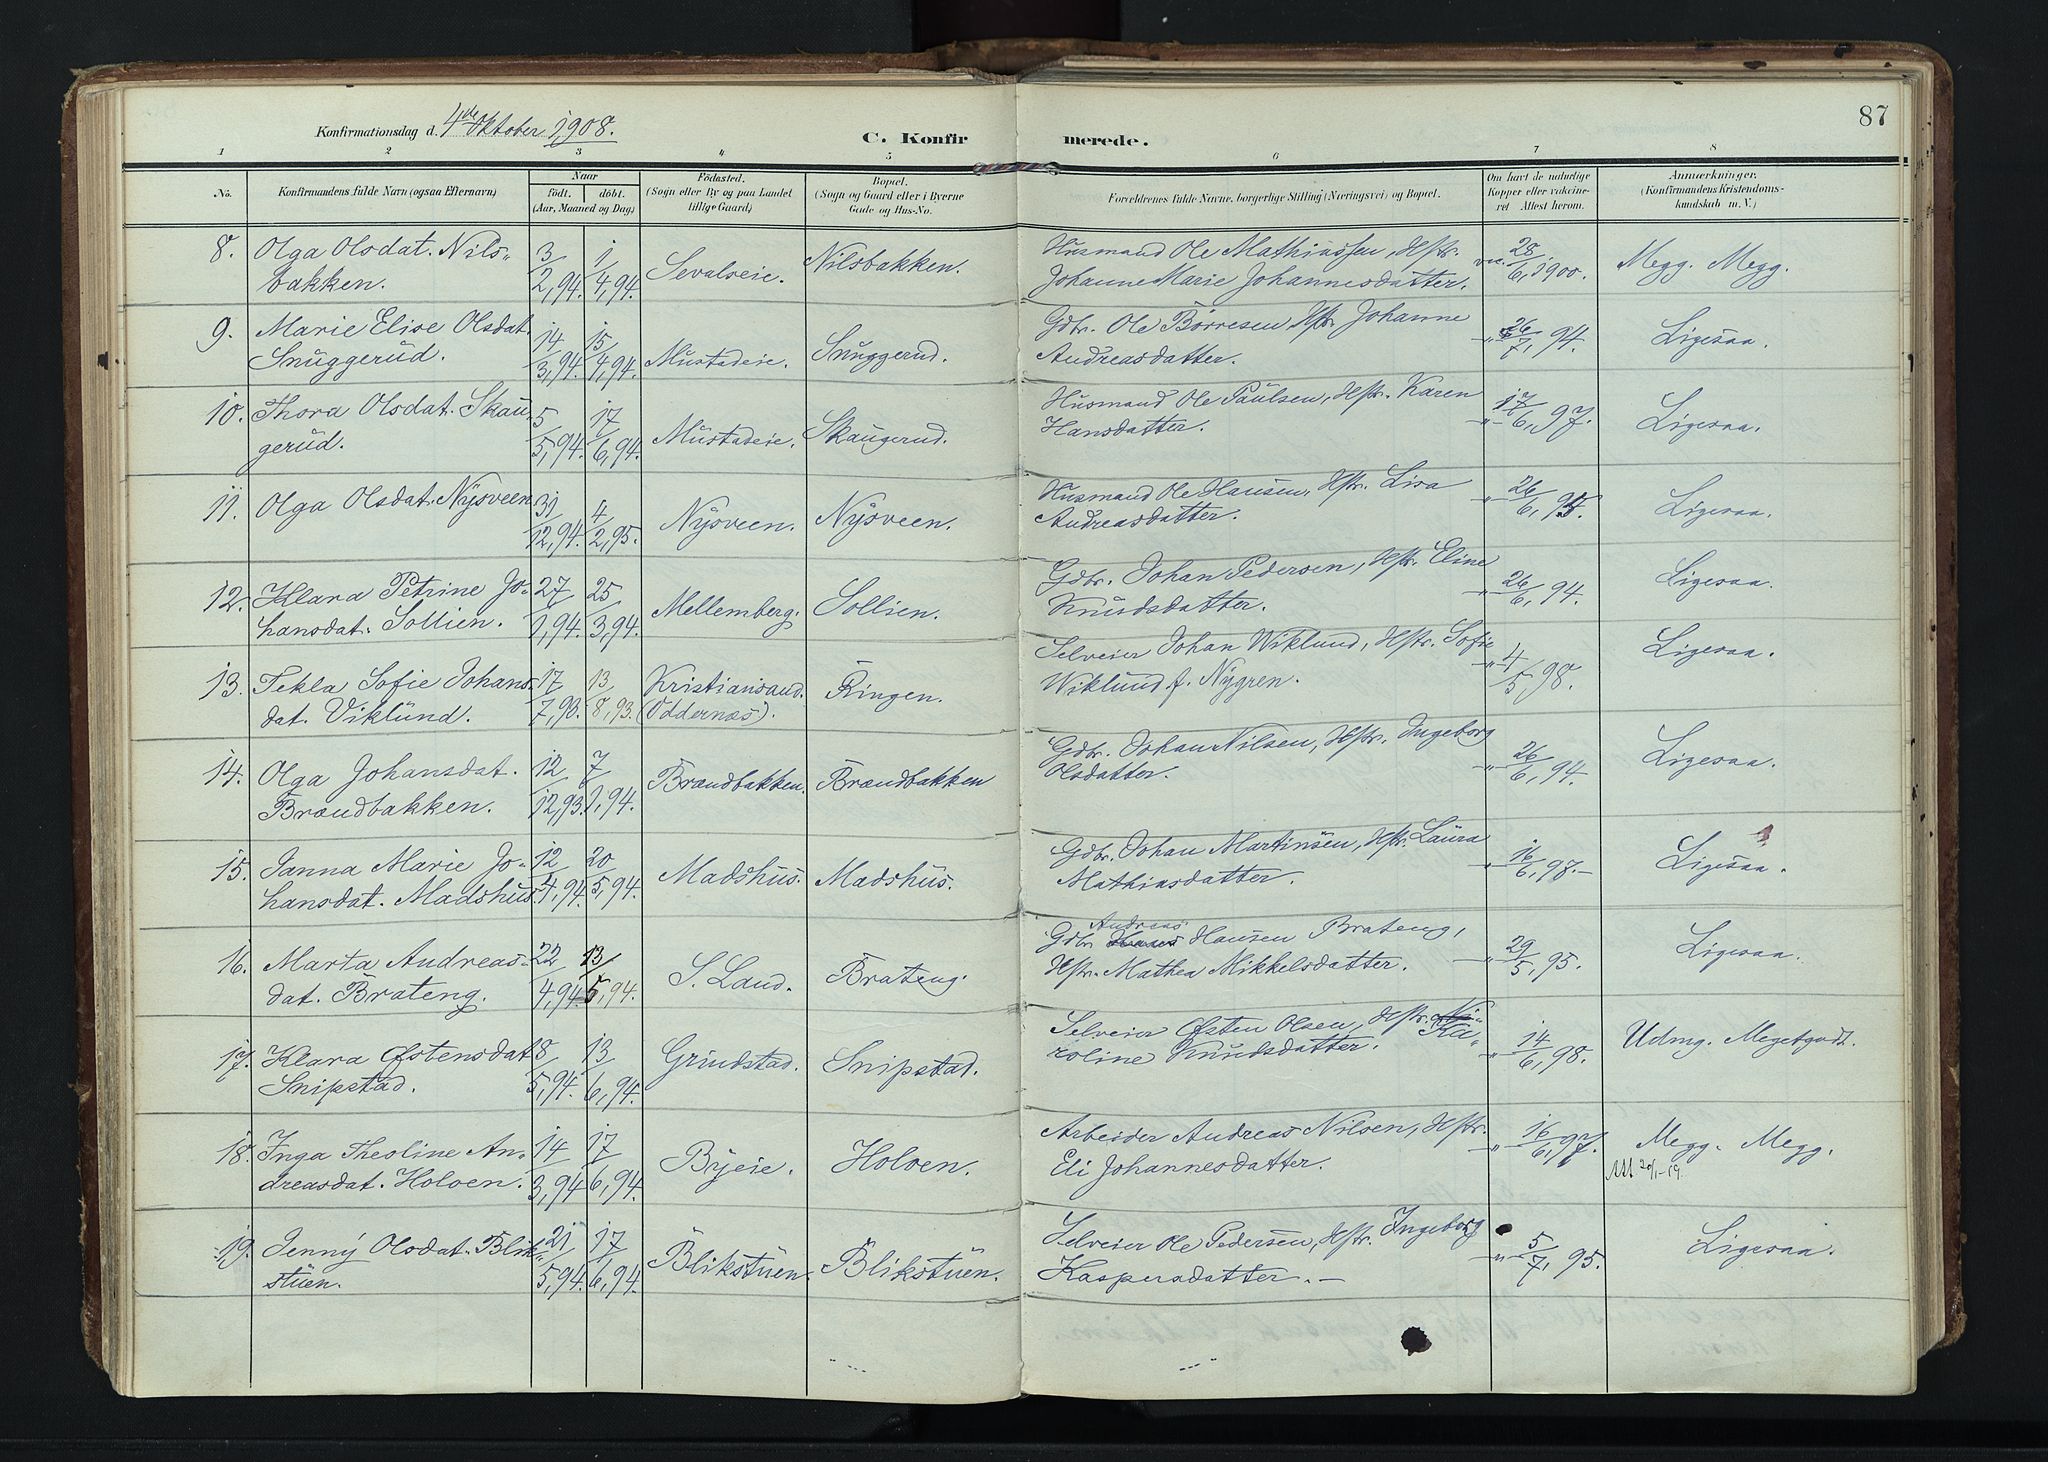 87
Konfirmationsdag d. 4de Oktober 1908.
C. Konfirmerede.
1 2 3 4 5 6 7 8
No. Konfirmandens fulde Navn (ogsaa Efternavn) Naar født. døbt. (Aar, Maaned og Dag) Fødested. (Sogn eller By og paa Landet tillige Gaard) Bopæl. (Sogn og Gaard eller i Byerne Gade og Hus-No. Forældrenes fulde Navne, borgerlige Stilling (Næringsvei) og Bopæl. Om havt de naturlige Kopper eller vakcineret Attest herom. Anmærkninger. (Konfirmandens Kristendomskundskab m. V.)
8. Olga Olsdat. Nils- 3 1 Sevalseie. Nilsbakken. Husmand Ole Mathiassen, Hstr. vac. 28 Megg. Megg.
bakken. 2, 94. 4, 94. Johanne Marie Johannesdatter. 6, 1900.
9. Marie Elise Olsdat. 14 15 Mustadeie. Snuggerud. Gdbr. Ole Børresen Hstr. Johanne -"- 26 Ligesaa.
Snuggerud. 3, 94. 4, 94. Andreasdatter. 7, 94.
10. Thora Olsdat. Skau 5 17 Mustadeie. Skaugerud. Husmand Ole Paulsen, Hstr. Karen -"- 17 Ligesaa.
gerud. 5, 94. 6, 94. Hansdatter. 6, 97.
11. Olga Olsdat. Nysveen 31 4 Nysveen. Nysveen. Husmand Ole Hansen, Hstr. Lisa -"- 26 Ligesaa.
12, 94. 2, 95. Andreasdatter. 6, 95.
12. Klara Petrine Jo- 27 25 Mellemberg. Sollien. Gdbr. Johan Pedersen, Hstr. Eline -"- 26 Ligesaa.
hansdat. Sollien. 1, 94. 3, 94. Knudsdatter. 6, 94.
13. Tekla Sofie Johans- 17 13 Kristiansand. Ringen. Selveier Johan Wiklund, Hstr. Sofie -"- 4 Ligesaa.
dat. Viklund. 7, 93. 8, 93. (Oddernæs). Wiklund f. Nygren. 5, 98.
14. Olga Johansdat. 12 7 Brandbakken. Brandbakken Gdbr. Johan Nilsen, Hstr. Ingeborg -"- 26 Ligesaa.
Brandbakken. 12, 93. 1, 94. Olsdatter. 6, 94.
15. Janna Marie Jo- 12 20 Madshus. Madshus. Gdbr. Johan Martinsen, Hstr. Laura -"- 16 Ligesaa.
hansdat. Madshus. 4, 94. 5, 94. Mathiasdatter. 6, 98.-
Andreas
16. Marta Andreas- 22 13 S. Land. Brateng. Gdbr. Hans Hansen Brateng, -"- 29 Ligesaa.
dat. Brateng. 4, 94. 5, 94. Hstr. Mathea Mikkelsdatter. 5, 95.
17. Klara Østensdat 8 13 Grindstad. Snipstad. Selveier Østen Olsen, Hstr. Ka- -"- 14 Udmg. Megetgodt.
Snipstad. 5, 94. 6, 94. roline Knudsdatter. 6, 98.
18. Inga Theoline An- 14 17 Byeie. Holoen. Arbeider Andreas Nilsen, Hstr. -"- 16 Megg. Megg.
dreasdat. Holoen. 3, 94 6, 94. Eli Johannesdatter. 6, 97. 20/1-59.
19. Jenny Olsdat. Blik- 21 17 Blikstuen. Blikstuen. Selveier Ole Pedersen, Hstr. Ingeborg -"- 5 Ligesaa.
stuen. 5, 94. 6, 94. Kaspersdatter.- 7, 95.